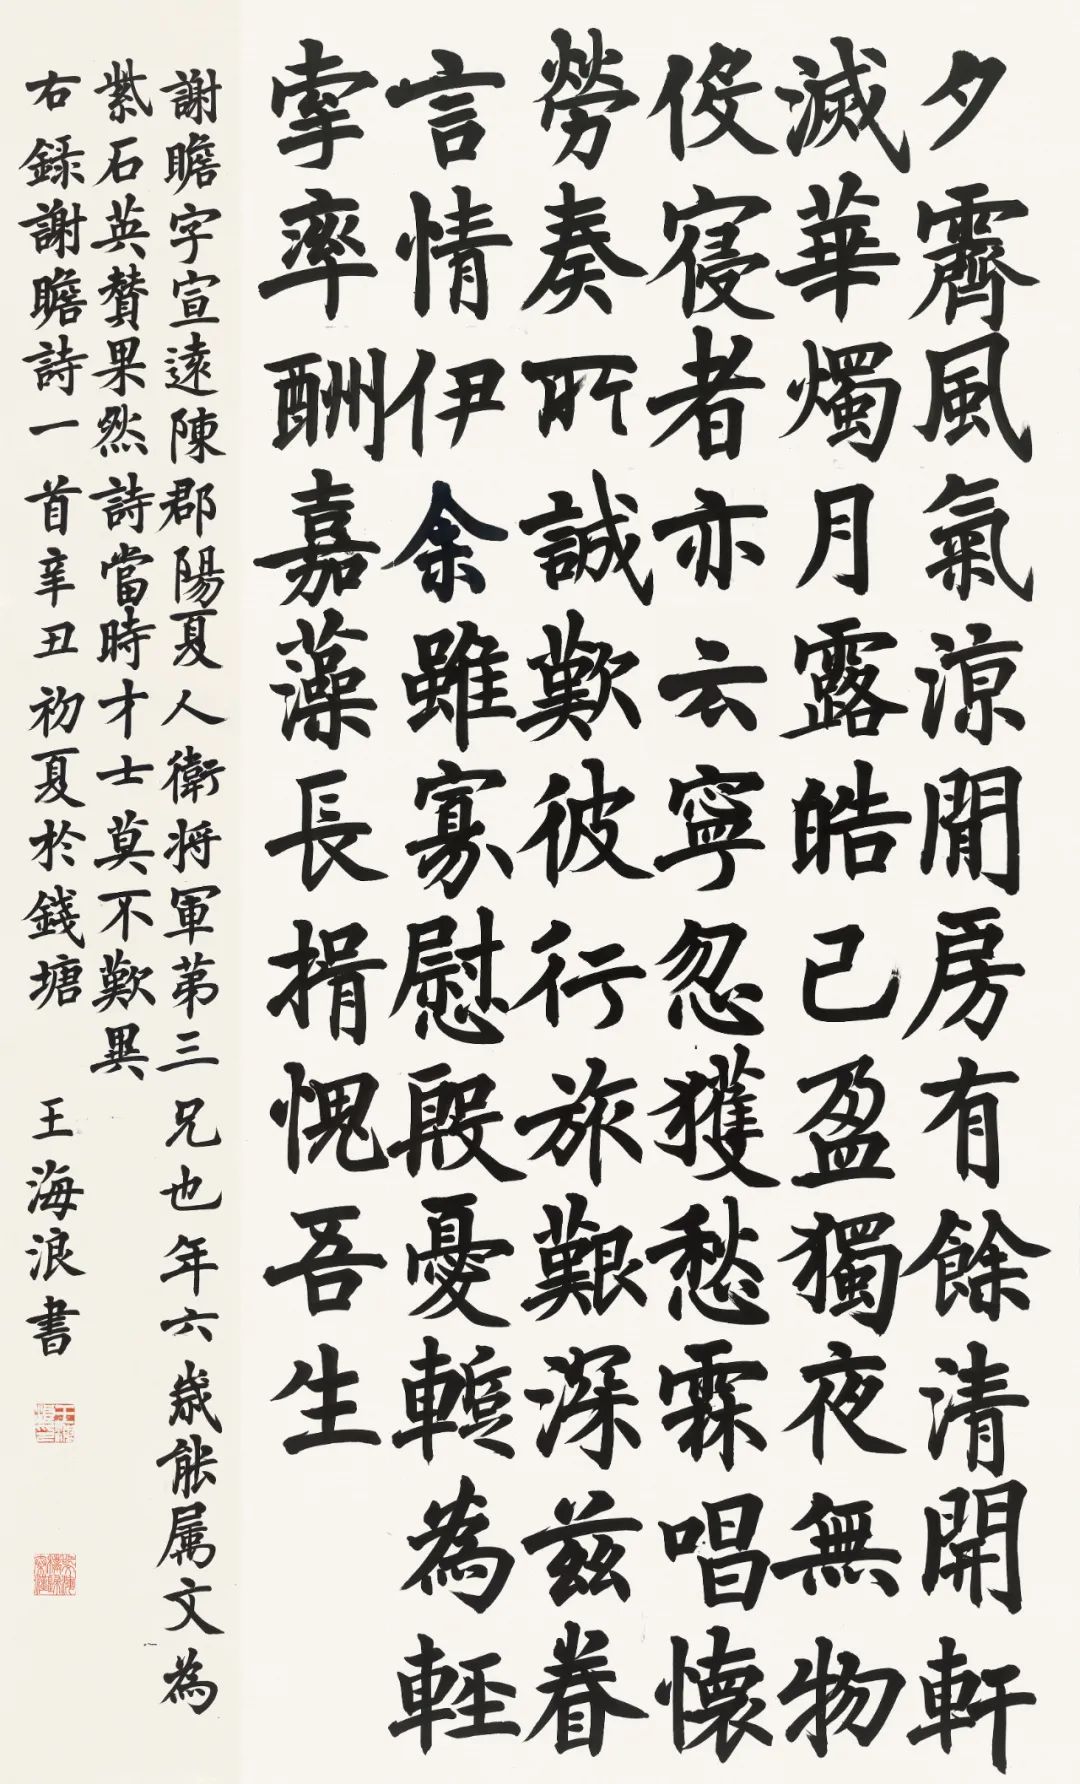 夕霽風氣涼閒房有餘清開軒
滅華燭月露皓已盈獨夜無物
役寝者亦云寧忽獲愁霖唱懷
勞奏所誠歎彼行旅艱深茲眷
言情伊余雖寡慰殷憂暫為輕
牽率酬嘉藻長揖愧吾生
謝瞻字宣遠陳郡陽夏人衛将軍苐三兄也年六歳能属文為
紫石英賛果然詩當時才士莫不歎異
右録謝瞻詩一首辛丑初夏於錢塘 王海浪書